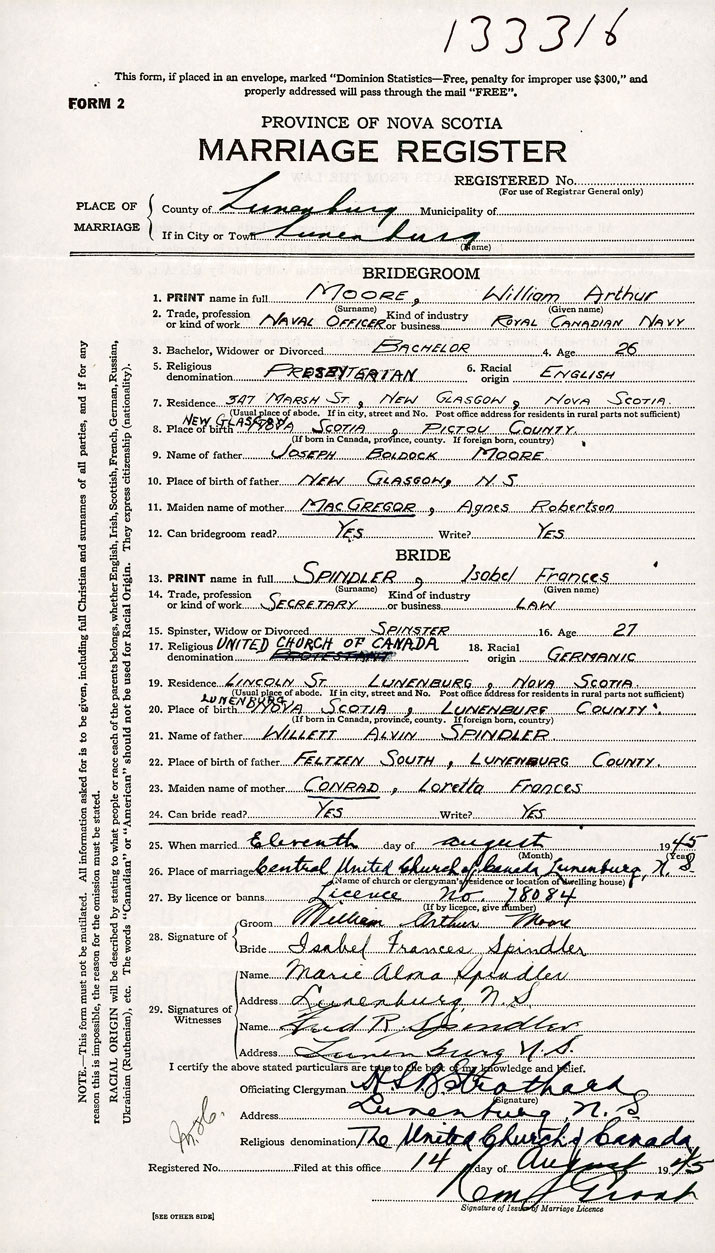 133316
This form, if placed in an envelope, marked "Dominion Statistics—Free, penalty for improper use $300," and
properly addressed will pass through the mail "FREE".
FORM 2
PROVINCE OF NOVA SCOTIA
MARRIAGE REGISTER
REGISTERED No.
(For use of Registrar General only)
PLACE OF MARRIAGE
County of Lunenburg Municipality of
If in City or Town Lunenburg
(Name)
BRIDEGROOM
1. PRINT name in full MOORE, William Arthur
(Surname) (Given name)
2. Trade, profession or kind of work NAVAL OFFICER Kind of industry or business ROYAL CANADIAN NAVY
3. Bachelor, Widower or Divorced BACHELOR 4. Age 26
5. Religious denomination PRESBYTERIAN 6. Racial origin ENGLISH
7. Residence 347 MARSH ST., NEW GLASGOW, NOVA SCOTIA.
(Usual place of abode. If in city, street and No. Post office address for residents in rural parts not sufficient)
NEW GLASGOW
8. Place of birth NOVA SCOTIA, PICTOU COUNTY.
(If born in Canada, province, county. If foreign born, country)
9. Name of father JOSEPH BOLDOCK MOORE.
10. Place of birth of father NEW GLASGOW, N.S
11. Maiden name of mother MACGREGOR, Agnes Robertson
12. Can bridegroom read? YES Write? YES
BRIDE
13. PRINT name in full SPINDLER, Isobel Frances
(Surname) (Given name)
14. Trade, profession or kind of work SECRETARY Kind of industry or business LAW
15. Spinster, Widow or Divorced SPINSTER 16. Age 27
17. Religious denomination UNITED CHURCH OF CANADA PROTESTANT 18. Racial origin GERMANIC
19. Residence LINCOLN ST. LUNENBURG, NOVA SCOTIA.
(Usual place of abode. If in city, street and No. Post office address for residents in rural parts not sufficient)
LUNENBURG,
20. Place of birth NOVA SCOTIA, LUNENBURG COUNTY.
(If born in Canada, province, county. If foreign born, country)
21. Name of father WILLETT ALVIN SPINDLER
22. Place of birth of father FELTZEN SOUTH, LUNENBURG COUNTY.
23. Maiden name of mother CONRAD, Loretta Frances
24. Can bride read? YES Write? YES
25. When married Eleventh day of august 1945
(Month) (Year)
26. Place of marriage Central United Church of Canada Lunenburg, N.S.
(Name of church or clergyman's residence or location of dwelling house)
27. By licence or banns Licence No. 78084
(If by licence, give number)
28. Signature of
Groom William Arthur Moore
Bride Isabel Frances Spindler
29. Signatures of Witnesses
Name Marie Alma Spindler
Address Lunenburg, N.S.
Name Fred R. Spindler
Address Lunenburg N.S.
I certify the above stated particulars are true to the best of my knowledge and belief.
Officiating Clergyman
(Signature)
Address Lunenburg, N.S
Religious denomination The United Church of Canada
Registered No. Filed at this office 14 day of August 1945
Signature of Issuer of Marriage Licence
[SEE OTHER SIDE]
NOTE.—This form must not be mutilated. All information asked for is to be given, including full Christian and surnames of all parties, and if for any
reason this is impossible, the reason for the omission must be stated.
RACIAL ORIGIN will be described by stating to what people or race each of the parents belongs, whether English, Irish, Scottish, French, German, Russian,
Ukrainian (Ruthenian), etc. The words "Canadian" or "American" should not be used for Racial Origin. They express citizenship (nationality).